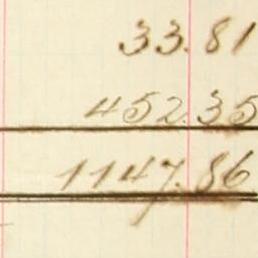 33.81
452.35
1147.86